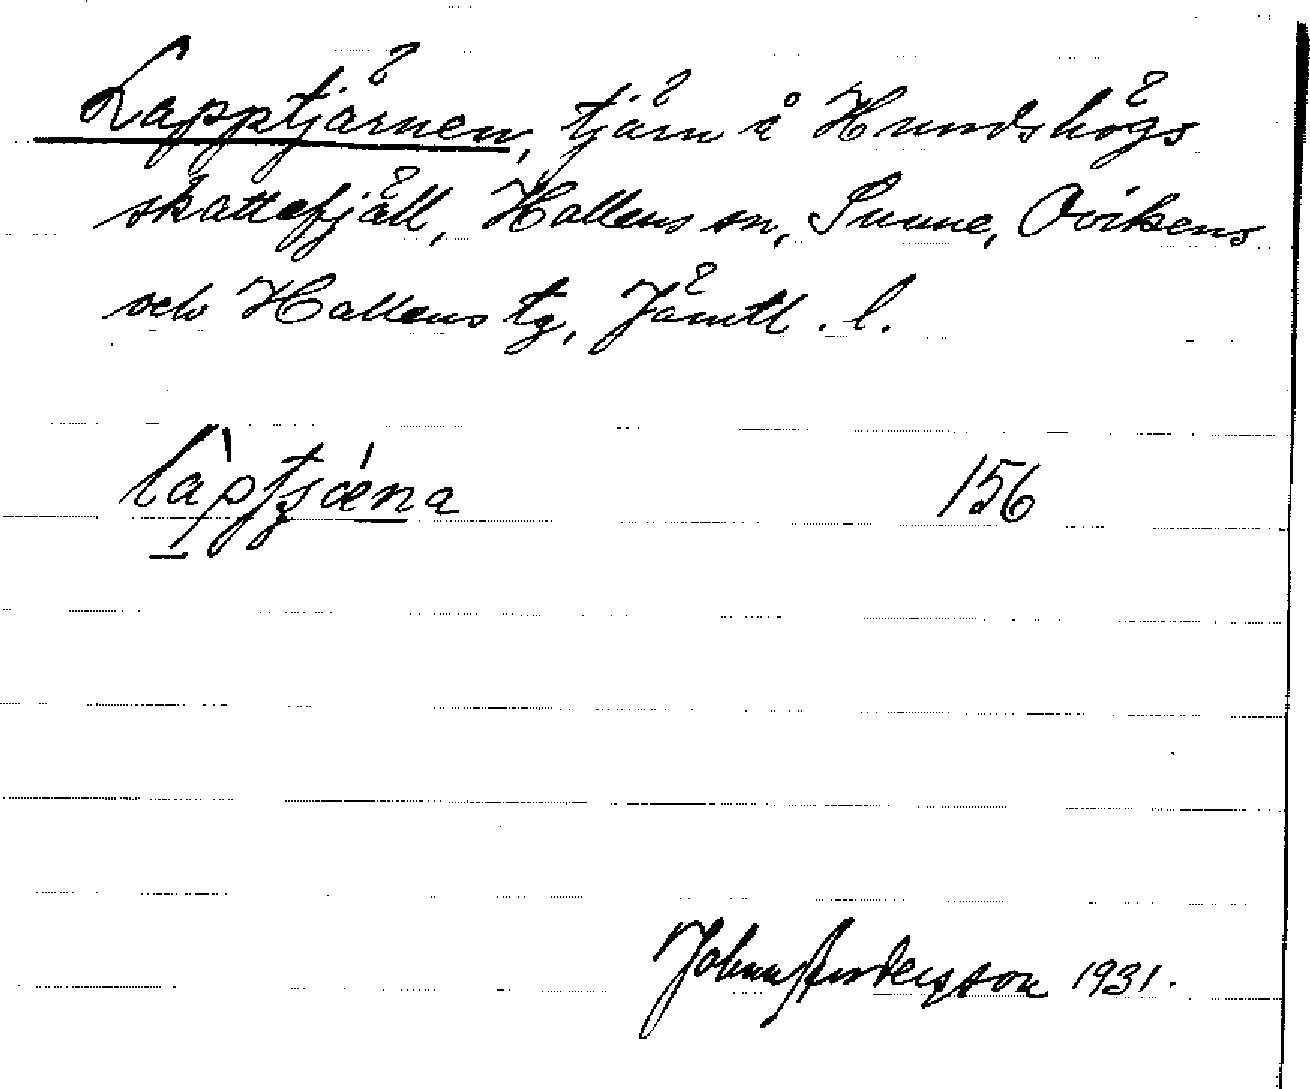 Lapptjärnen, tjärn å Hundshögs
skattefjäll, Hallens sn, Sunne, Ovikens
och Hallens tg, Jämtl. l.
156
Johan Andersson 1931.